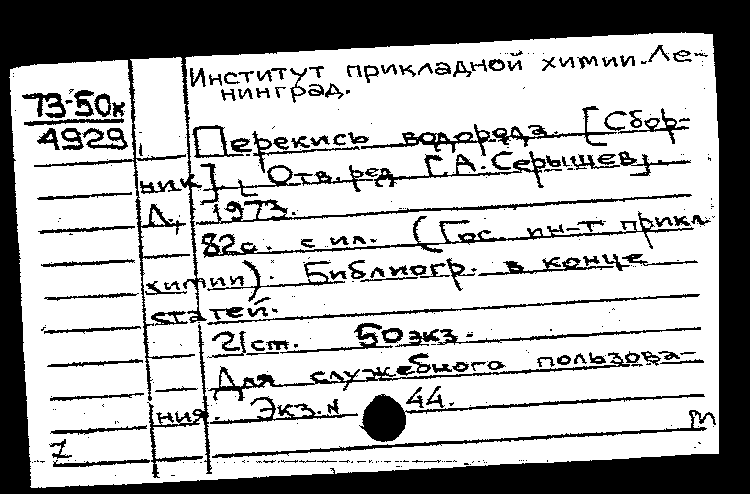 Институт прикладной химии. Ле-
нинград.
73-50к
4929
Перекись водорода. [Сбор-
ник]. [Отв. ред. Г.А. Серышев].
Л., 1973.
82с. с ил. (Гос. ин-т прикл.
химии). Библиогр. в конце
статей.
21 см. 50 экз.
Для служебного пользова-
ния. Экз. N 44.